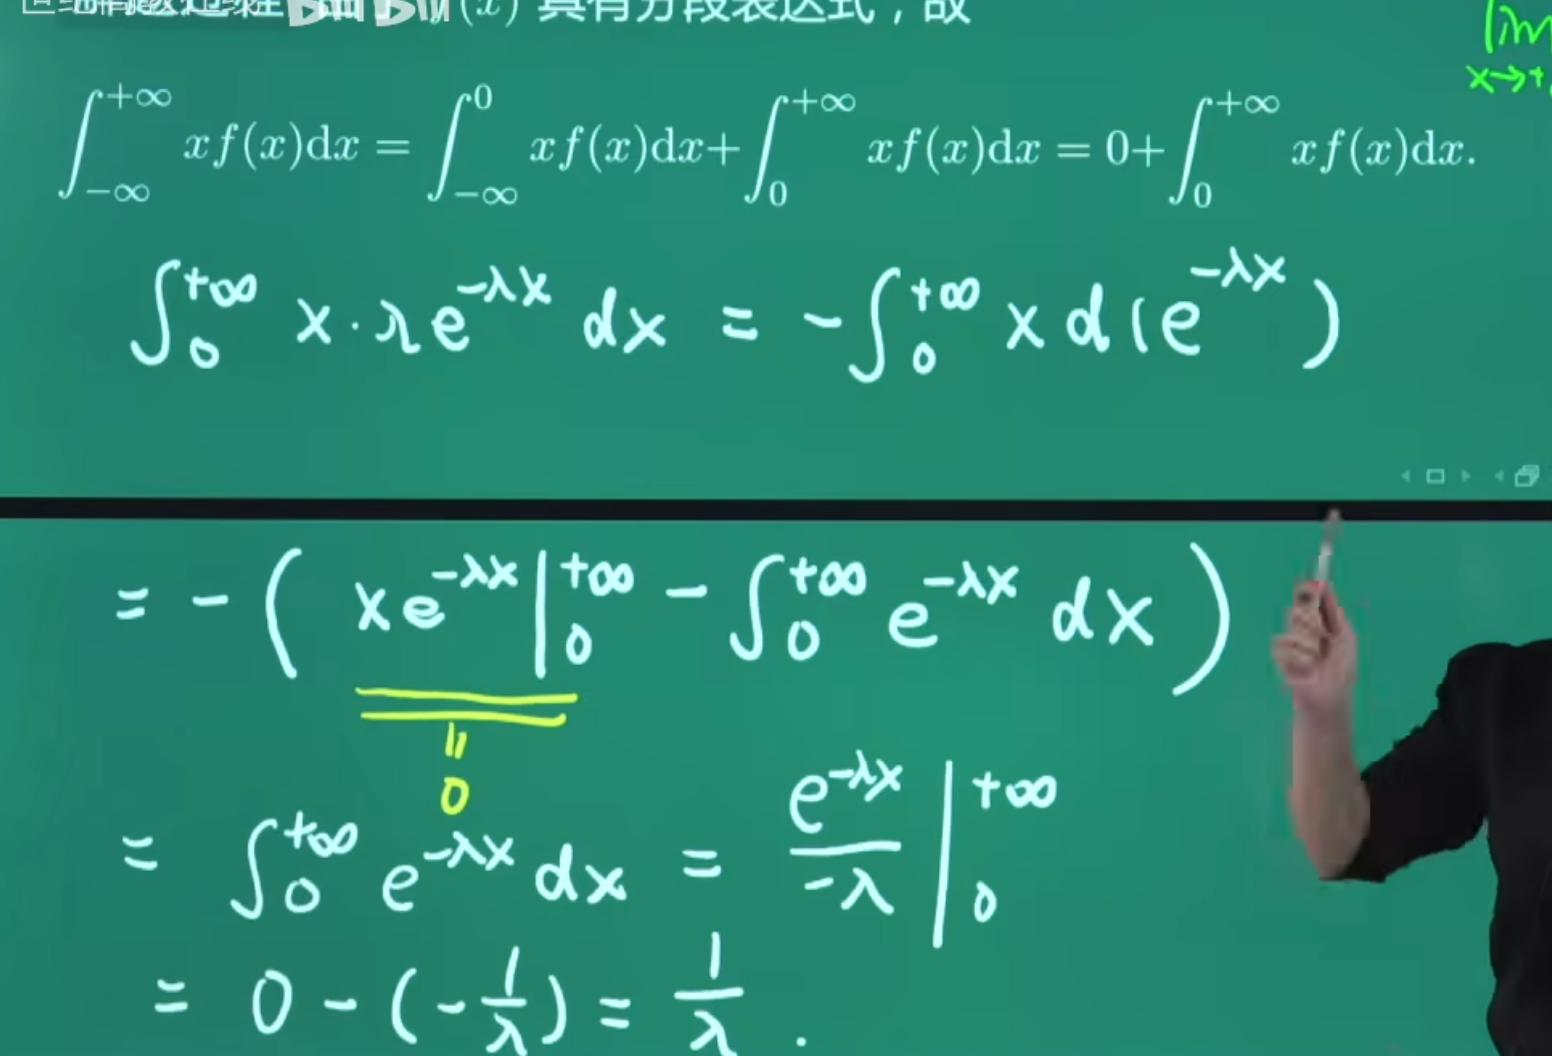 (x) 具有分段表达式，故
lim
x→+
∫_{-∞}^{+∞} xf(x)dx = ∫_{-∞}^{0} xf(x)dx + ∫_{0}^{+∞} xf(x)dx = 0 + ∫_{0}^{+∞} xf(x)dx.
∫_{0}^{+∞} x·λe^{-λx} dx = -∫_{0}^{+∞} x d(e^{-λx})
= -( xe^{-λx} |_{0}^{+∞} - ∫_{0}^{+∞} e^{-λx} dx )
=
0
= ∫_{0}^{+∞} e^{-λx} dx = \frac{e^{-λx}}{-λ} |_{0}^{+∞}
= 0 - (-\frac{1}{λ}) = \frac{1}{λ}.